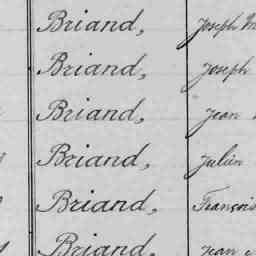 Briand, Joseph M
Briand, Joseph
Briand, Jean
Briand, Julien
Briand, François
Briand, Jean